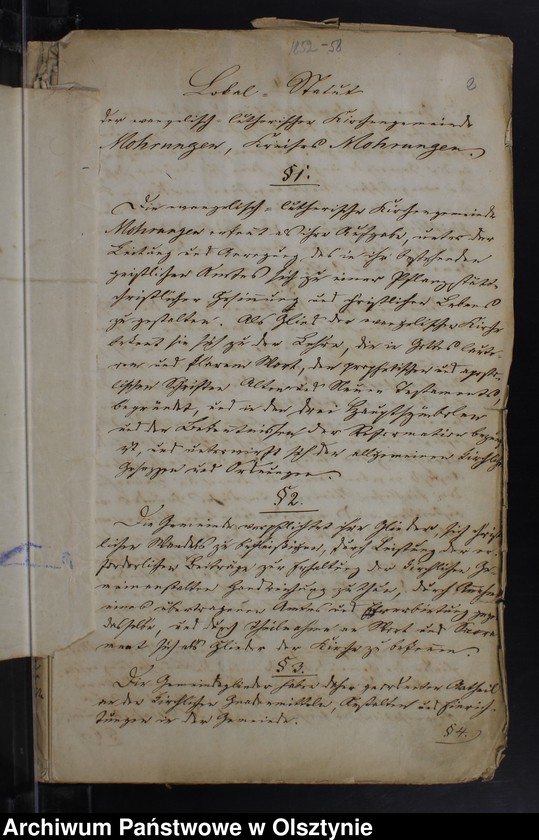 1852-58
2
Lokal-Statut
der evangelisch-lutherischen Kirchengemeinde
Mohrungen, Kreises Mohrungen.
§ 1.
Die evangelisch-lutherische Kirchengemeinde
Mohrungen erkennt als ihre Aufgabe, unter der
Leitung und Anregung des in ihr bestehenden
geistlichen Amtes sich zu einer Pflanzstätte
christlicher Gesinnung und christlichen Lebens
zu gestalten. Als Glied der evangelischen Kirche
bekennt sie sich zu der Lehre, die in Gottes laute-
rem und klarem Wort, den prophetischen und aposto-
lischen Schriften Alten und Neuen Testaments
begründet, und in den drei Hauptsymbolen
und den Bekenntnissen der Reformation bezeugt
ist, und unterwirft sich den allgemeinen kirchlichen
Gesetzen und Ordnungen.
§ 2.
Die Gemeinde verpflichtet ihre Glieder, sich christ-
lichen Wandels zu befleißigen, durch Leistung der er-
forderlichen Beiträge zur Erhaltung der kirchlichen Ge-
meinanstalten Handreichung zu thun, durch
eines übertragenen Amtes und Ehrerbietung gegen
dasselbe, und durch Theilnahme an Wort und Sacra-
ment sich als Glieder der Kirche zu bekennen.
§ 3.
Die Gemeindeglieder haben daher geordneten Antheil
an den kirchlichen Gnadenmitteln, Anstalten und Einrich-
tungen in der Gemeinde.
§ 4.
Archiwum Państwowe w Olsztynie